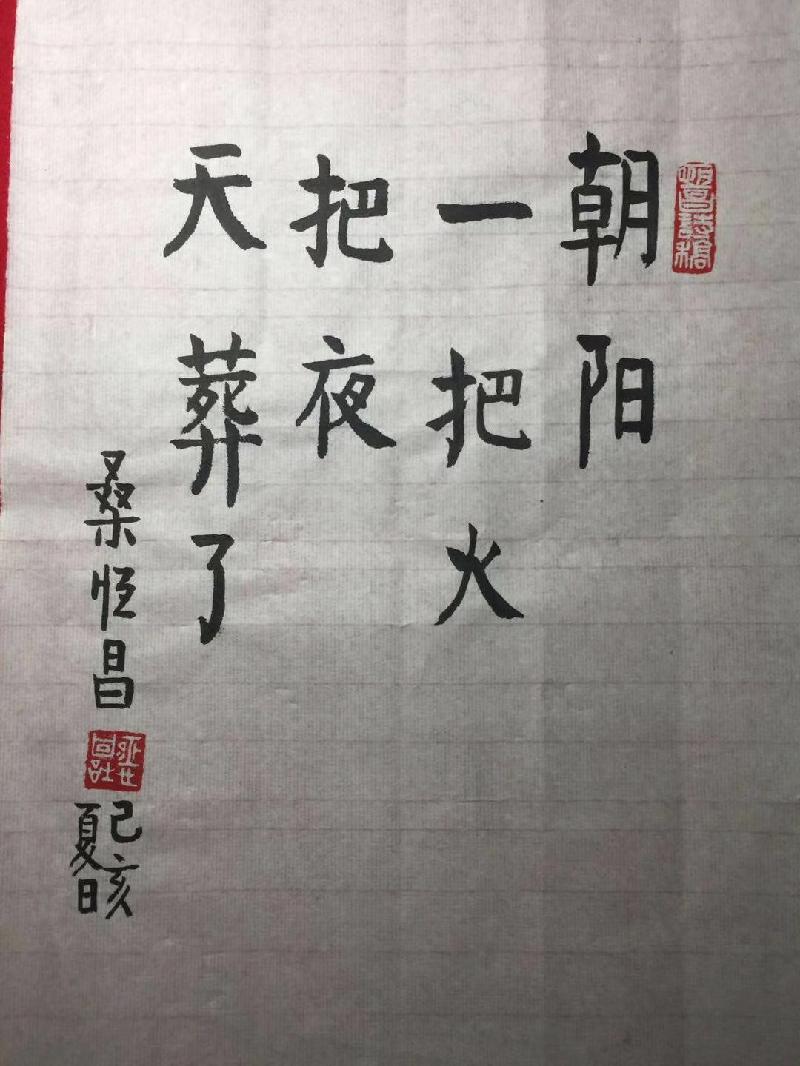 朝阳
一把火
把夜
天葬了
桑恒昌
己亥
夏日